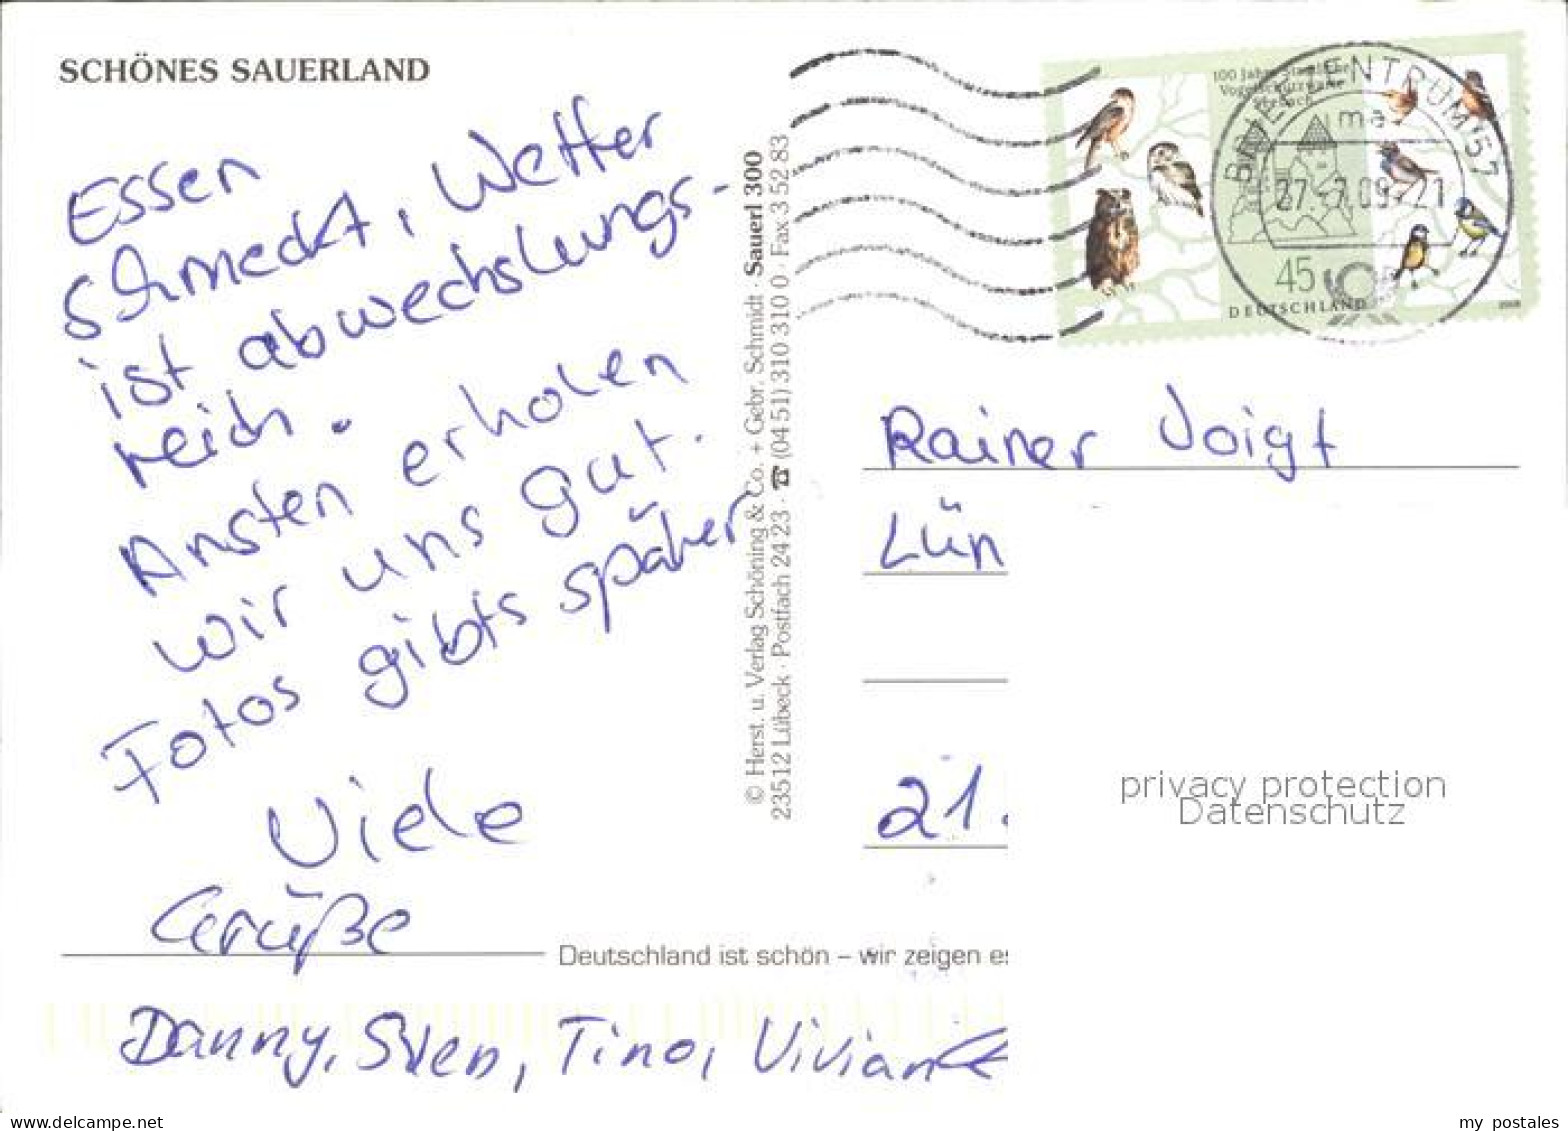 SCHÖNES SAUERLAND
Essen
schmeckt, Wetter
ist abwechslungs-
reich.
Ansten erholen
wir uns gut.
Fotos gibts später
Viele
Grüße
Danny, Sven, Tino, Vivian
© Herst. u. Verlag Schöning & Co. + Gebr. Schmidt · Sauerl 300
23512 Lübeck · Postfach 24 23 · ☎ (04 51) 310 310 0 · Fax 3 52 83
100 Jahre
45
DEUTSCHLAND
BRIEFZENTRUM 57
ma
27.-7.09.-21
Rainer Voigt
Lün
21.
privacy protection
Datenschutz
Deutschland ist schön – wir zeigen es
my postales